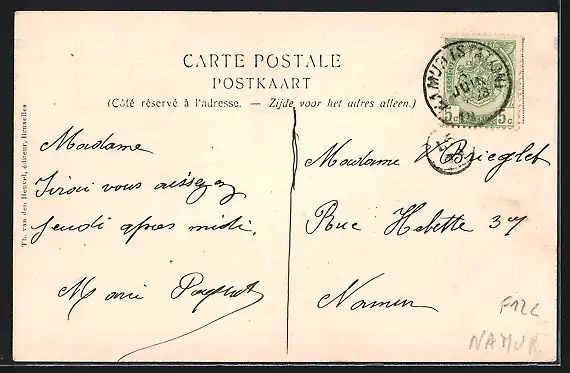 CARTE POSTALE
POSTKAART
(Côté réservé à l'adresse. — Zijde voor het adres alleen.)
Th. van den Heuvel, éditeur, Bruxelles
Madame
Jirai vous
Jeudi après midi.
Marie
Madame Briegleb
Rue Hebette 37
Namur
NAMUR (STATION)
JUIN
5c 5c
F12C
NAMUR